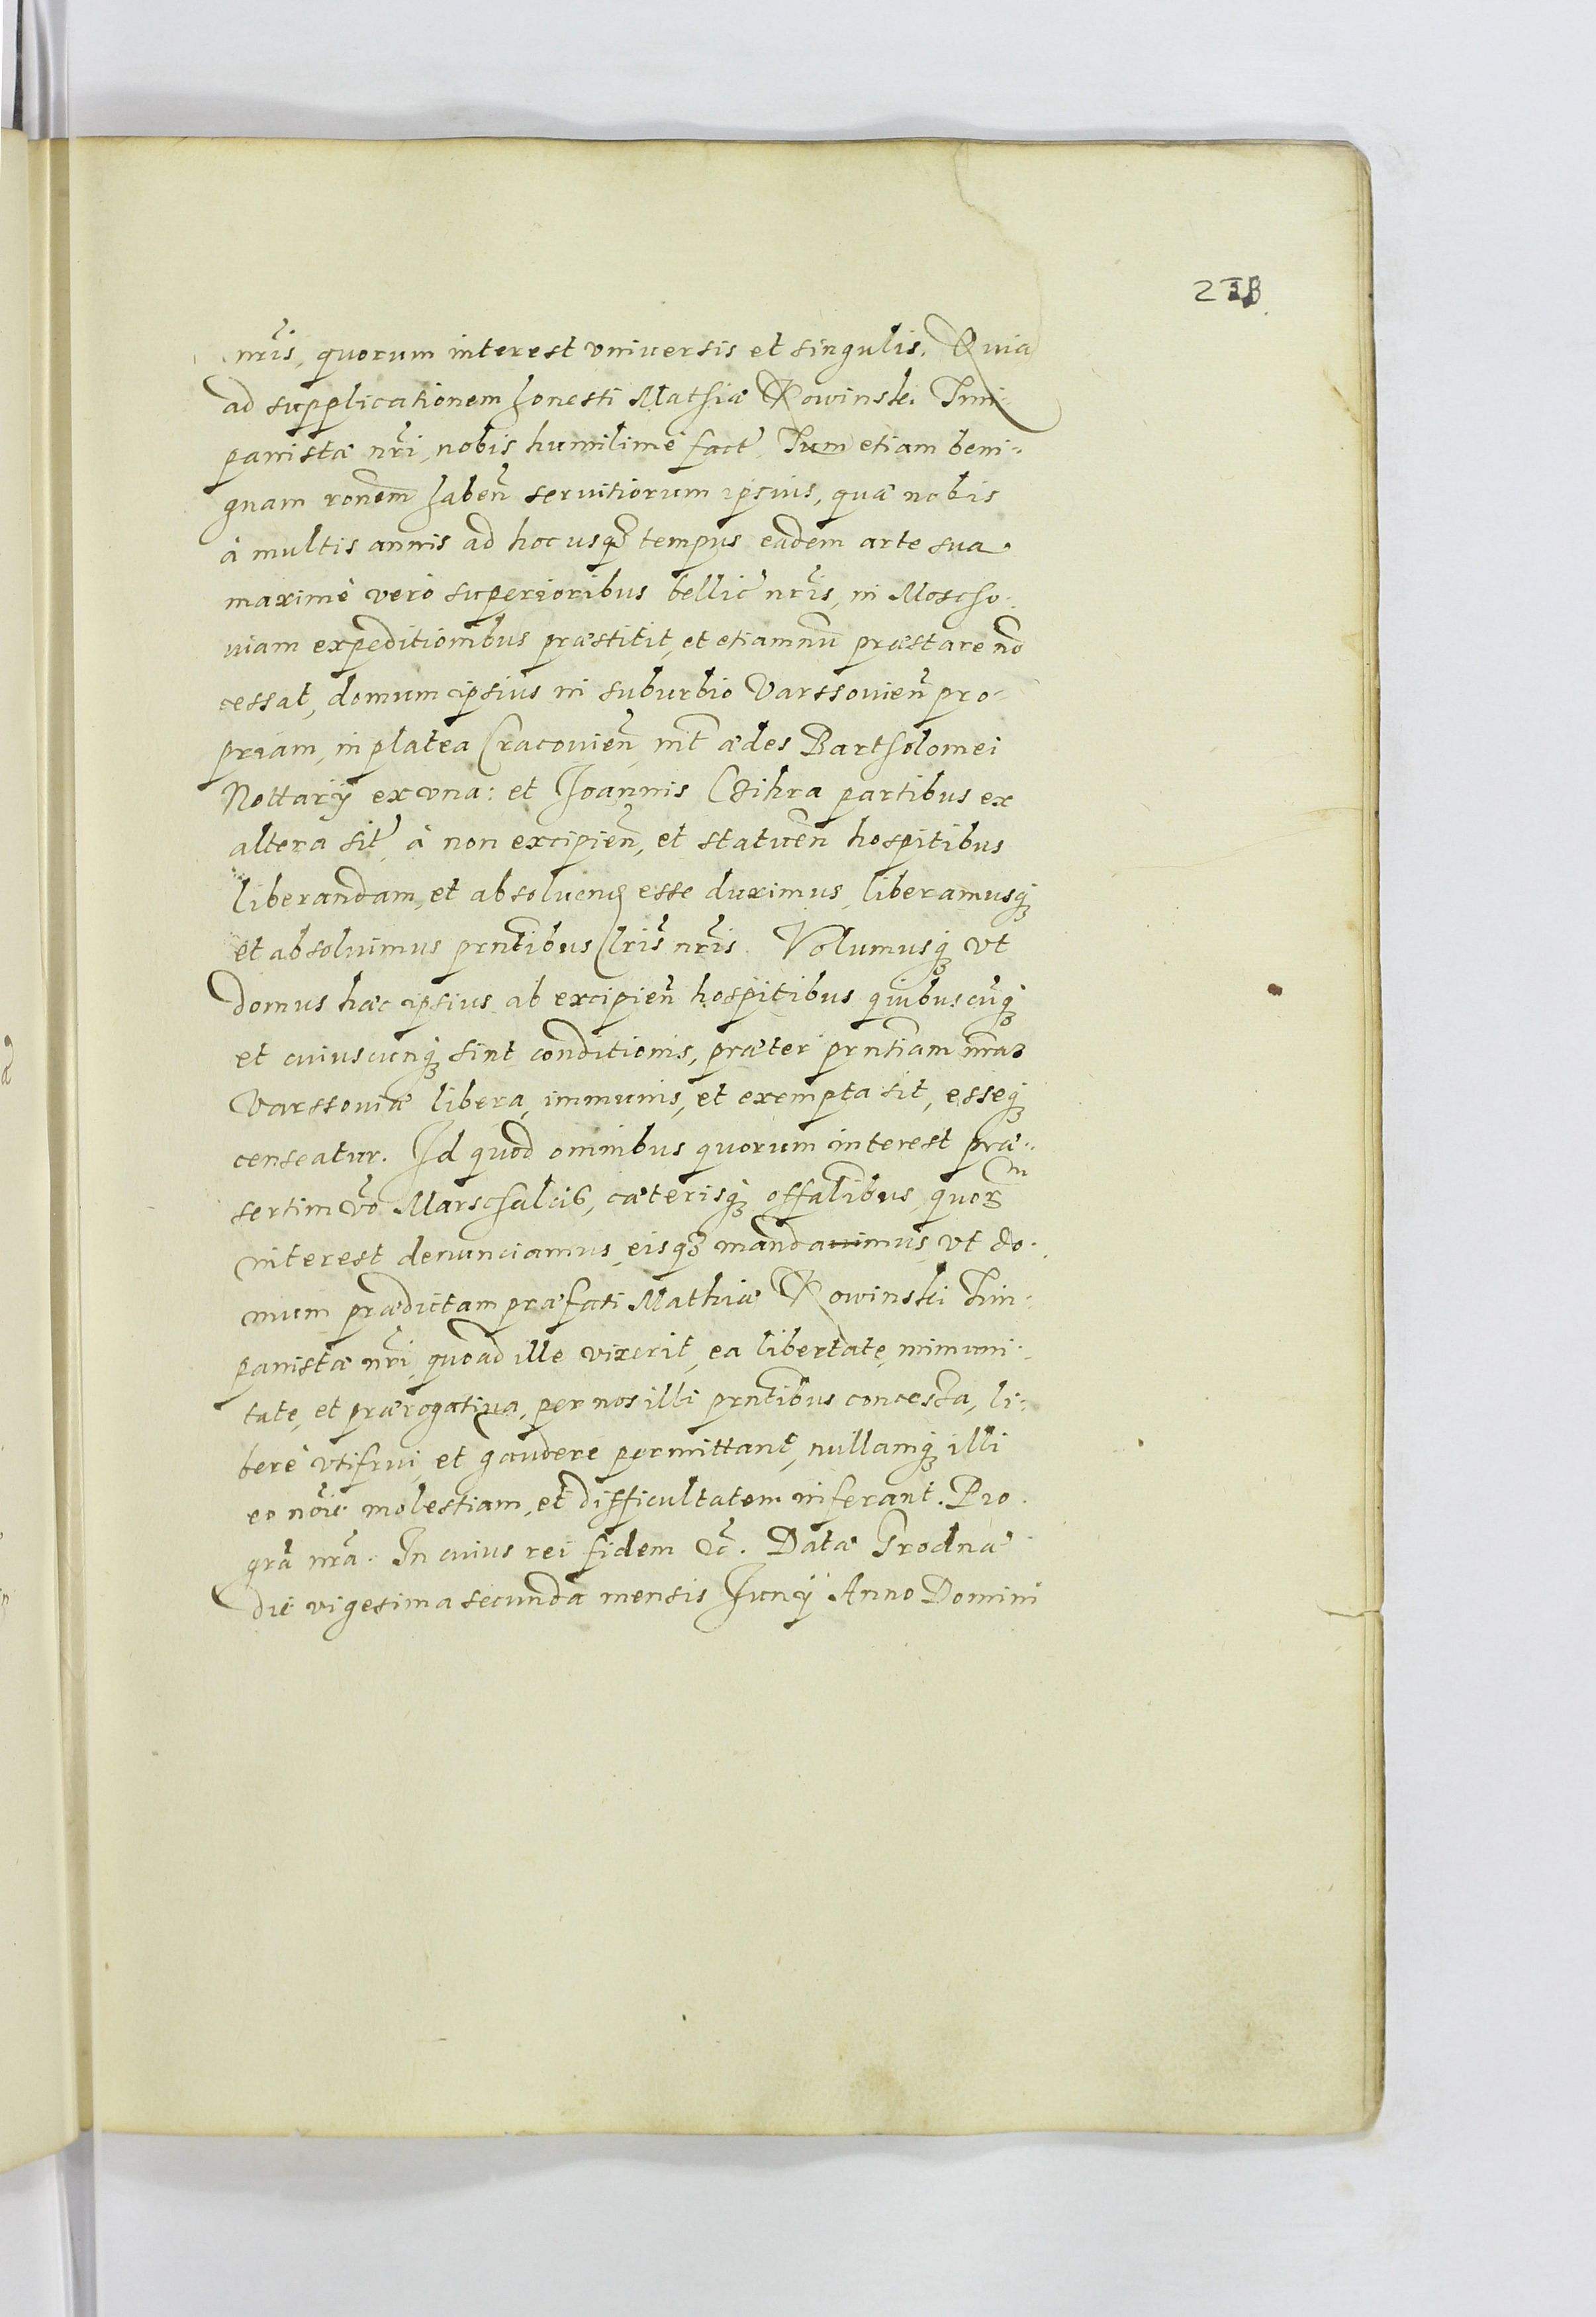 238.
nr̃is, quorum interest vniuersis et singulis. Quia
ad supplicationem honesti Mathiæ Rowinski Tim
panistæ nr̃i, nobis humilimè fact̃. Tum etiam beni-
gnam ron̄em haben̄ seruitiorum ipsius, quæ nobis
à multis annis ad hoc usq́ꝫ tempus eâdem arte sua.
maximè verò superioribus bellic̃ nr̃is, in Moscho-
uiam expeditionibus præstitit, et etiamnū præstare nō
cessat, domum ipsius in suburbio Varssouien̄ pro-
priam, in platea Cracouien̄, int̄ ædes Bartholomei
Nottarÿ ex vna: et Joannis partibus ex
altera sit̃, à non excipien̄, et statuen̄ hospitibus
liberandam, et absoluenđ esse duximus, liberamusq́ꝫ
et absoluimus prn̄tibus Lr̃is nr̃is. Volumusq́ꝫ vt
domus hæc ipsius ab excipien̄ hospitibus quibuscūq́ꝫ
et cuiuscunq́ꝫ sint conditionis, præter prn̄tiam nr̄aꝫ
Varssouiæ libera, immunis, et exempta sit, esseq́ꝫ
censeatur. Id quod omnibus quorum interest præ-
sertim vō Marschalcis, cæterisq́ꝫ offalibus, quoꝝ
interest denunciamus, eisqꝫ mandauimus, vt do-
mum prædictam præfati Mathiæ Rowinski Tim-
panistæ nr̃i, quoad ille vixerit, ea libertate, immuni-
tate, et prærogatiua, per nos illi prn̄tibus concessa, li-
berè vtifrui, et gaudere permittant, nullamq́ꝫ illi
eo nōie molestiam, et difficultatem inferant. Pro
gr̃a nr̃a. In cuius rei fidem &c̃. Datæ Grodnæ
die vigesima secunda mensis Junÿ Anno Domini